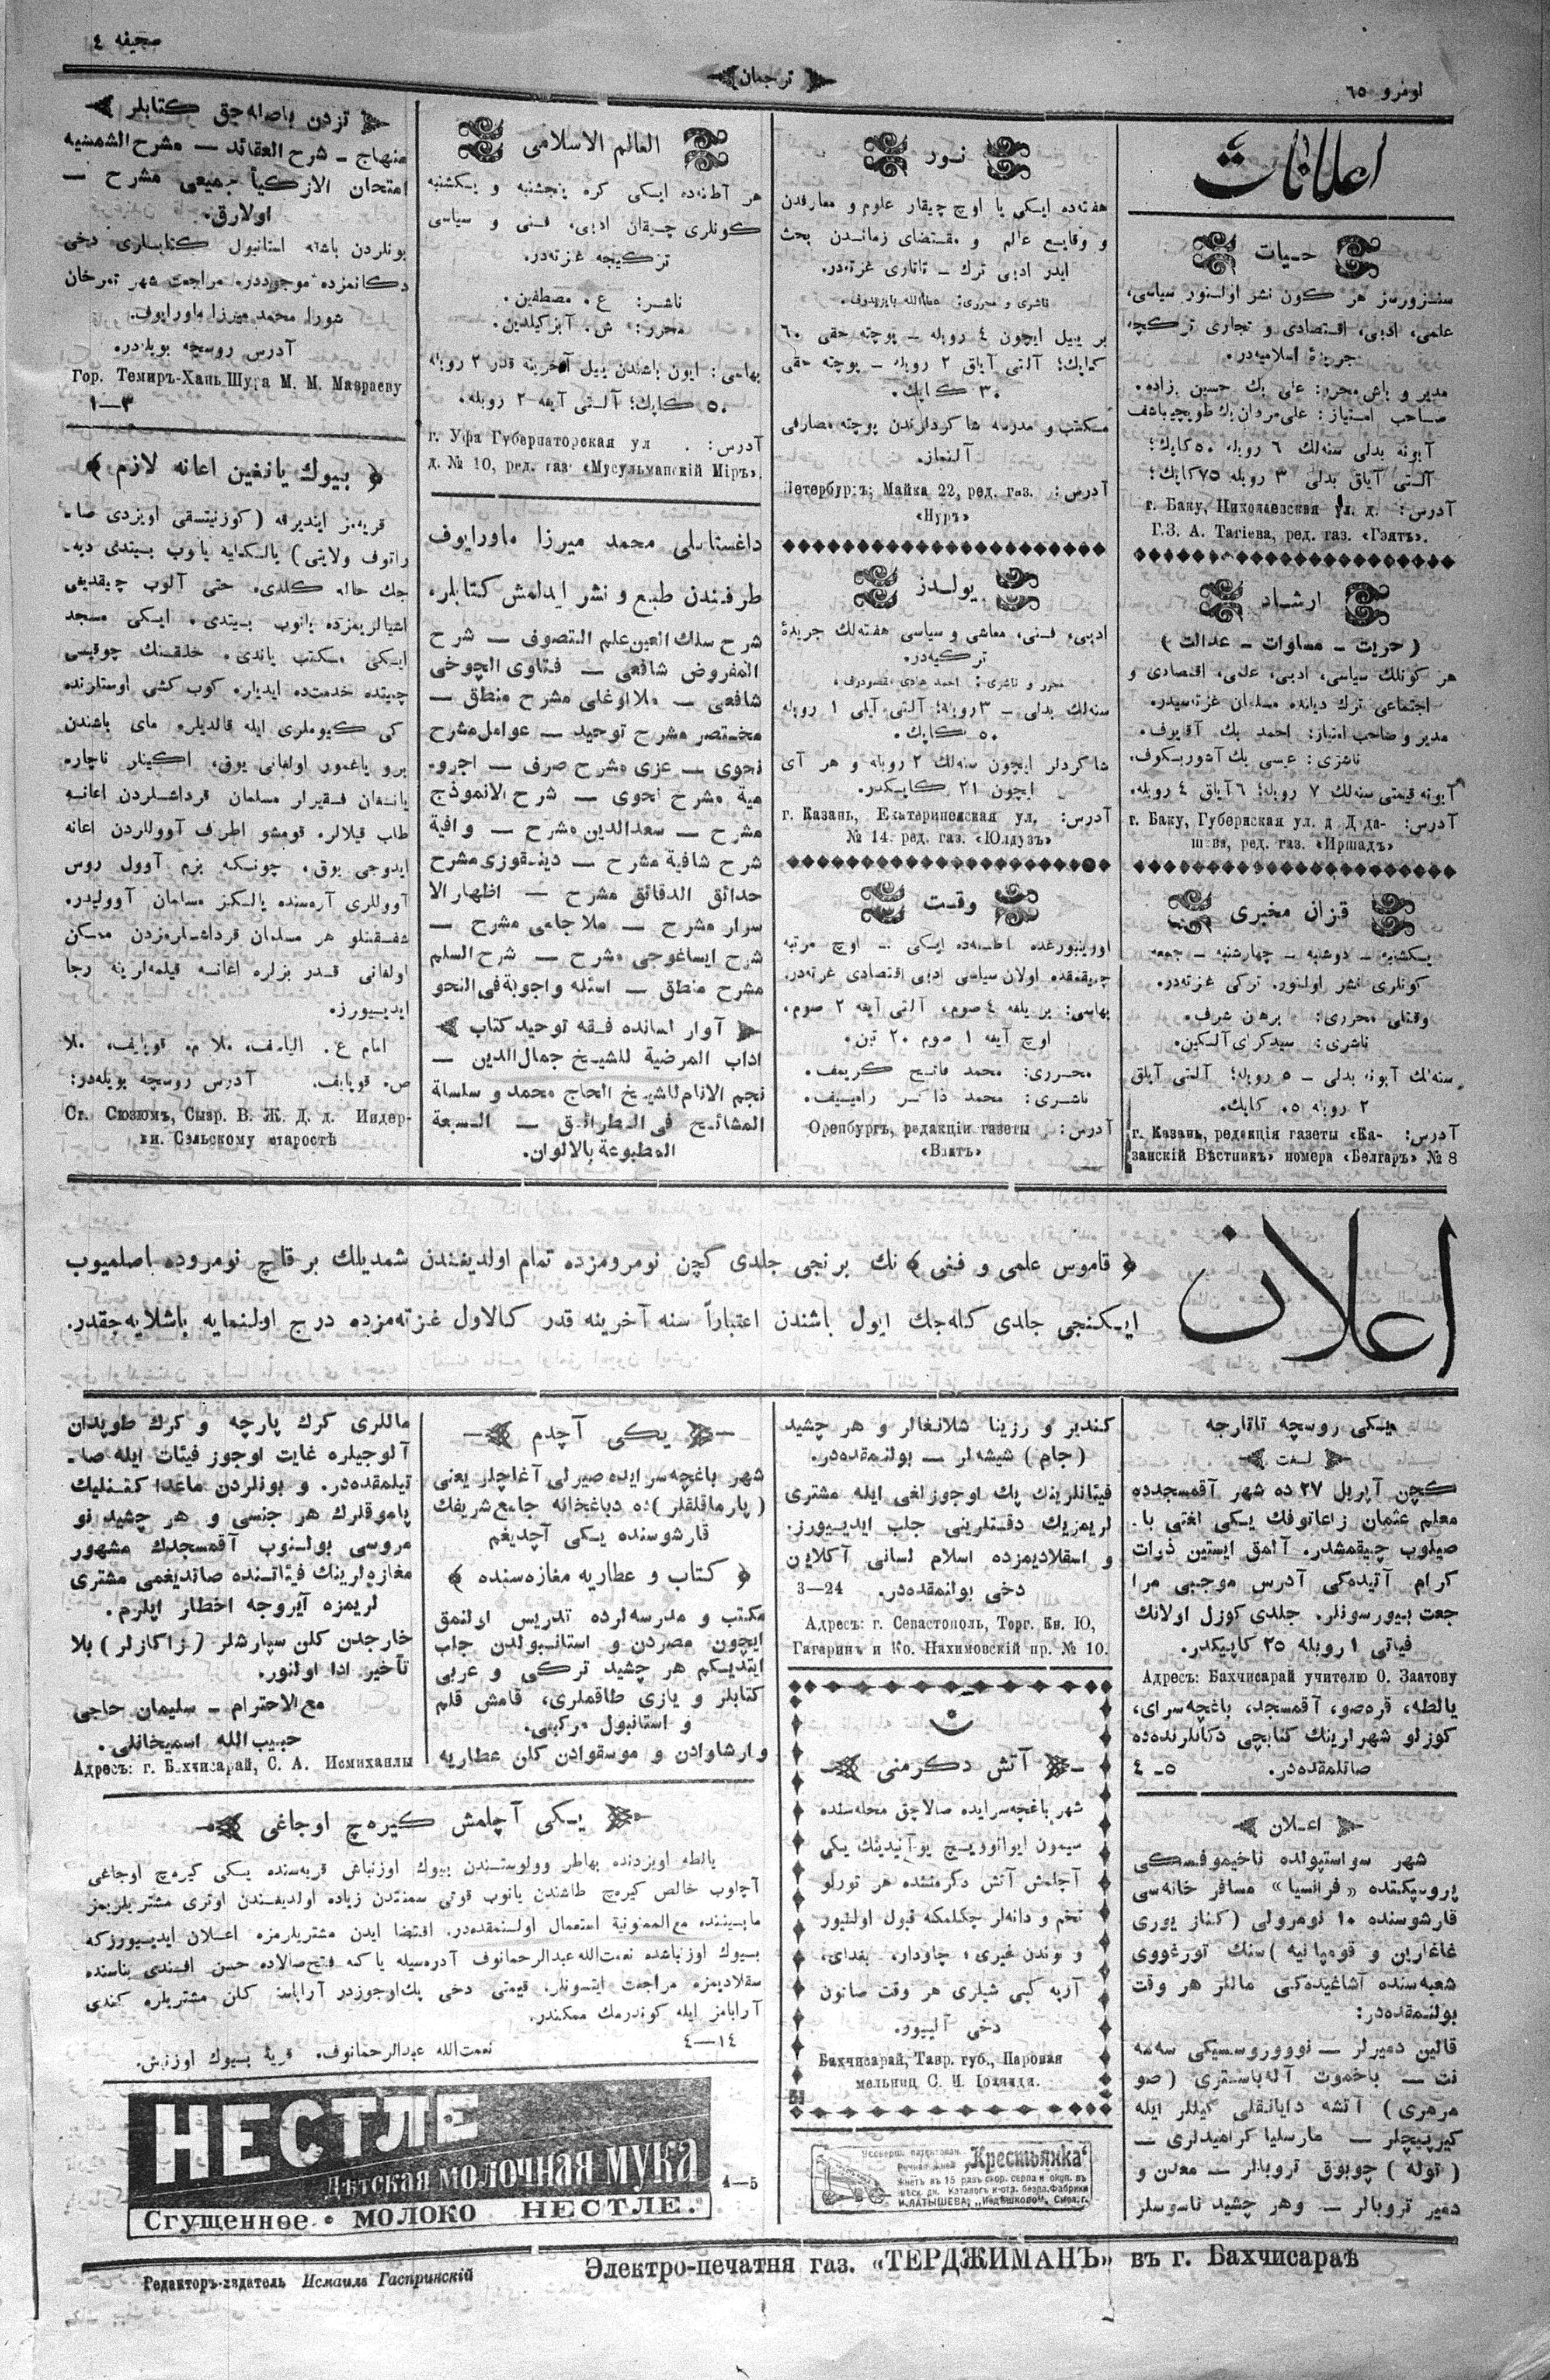 نومرو ٦٥
ترجمان
صحیفه ٤
اعلانات
حیات
سنزورسز هر کون نشر اولنور سیاسی،
علمی، ادبی، اقتصادی و تجاری ترکچه
جریدۀ اسلامیه‌در.
مدیر و باش محرر: علی بك حسین زاده.
صاحب امتیاز: علی مردان بك طوپچیباشف
آبونه بدلی سنه‌لك ٦ روبله ٥٠ کاپك؛
آلتی آیلق بدلی ٣ روبله ٧٥ کاپك؛
آدرس: г. Баку, Николаевская ул. д.
Г.З. А. Тагіева, ред. газ. «Гэятъ».
ارشاد
( حریت ـ مساوات ـ عدالت )
هر کونلك سیاسی، ادبی، علمی، اقتصادی و
اجتماعی ترك دیانده مسلمان غزته‌سیدر.
مدیر و صاحب امتیاز: احمد بك آقایوف.
ناشری: عیسی بك آشوربکوف.
آبونه قیمتی سنه‌لك ٧ روبله؛ ٦ آیلق ٤ روبله.
آدرس: г. Баку, Губернская ул. д Дада-
шева, ред. газ. «Иршадъ»
قزان مخبری
یکشنبه ـ دوشنبه ـ چهارشنبه ـ جمعه
کونلری نشر اولنور. ترکی غزته‌در.
وقتلی محرری: برهان شرف.
ناشری: سیدکرای آلکین.
سنه‌لك آبونه بدلی ـ ٥ روبله؛ آلتی آیلق
٢ روبله ٥٠ کاپك.
آدرس: г. Казань, редакція газеты «Ка-
занскій Вѣстникъ» номера «Белгаръ» № 8
نور
هفته‌ده ایکی یا اوچ چیقار علوم و معارفدن
و وقایع عالم و مقتضای زماندن بحث
ایدر ادبی ترك ـ تاتاری غزته‌در.
ناشری و محرری: عطاالله بایزیدوف.
بر ییل ایچون ٤ روبله ـ پوچته حقی ٦٠
کاپك؛ آلتی آیلق ٢ روبله ـ پوچته حقی
٣٠ کاپك.
مکتب و مدرسه شاکردلرندن پوچته مصارفی
آلنماز.
آدرس: Петербургъ; Майка 22, ред. газ.
«Нуръ»
یولدز
ادبی، فنی، معاشی و سیاسی هفته‌لك جریدۀ
ترکیه‌در.
محرر و ناشری: احمد هادی مقصودوف.
سنه‌لك بدلی ـ ٣ روبله؛ آلتی آیلی ١ روبله
٥٠ کاپك.
شاکردلر ایچون سنه‌لك ٢ روبله و هر آی
ایچون ٢١ کاپکدر.
آدرس: г. Казань, Екатерининская ул.
№ 14. ред. газ. «Юлдузъ»
وقت
اورینبورغده هفته‌ده ایکی ـ اوچ مرتبه
چیقمقده اولان سیاسی ادبی اقتصادی غزته‌در.
بهاسی: بر ییلغه ٤ صوم، آلتی آیغه ٢ صوم،
اوچ آیغه ١ صوم ٢٠ تین.
محرری: محمد فاتح کریمف.
ناشری: محمد ذاکر رامییف.
آدرس: Оренбургъ, редакціи газеты
«Вактъ»
العالم الاسلامی
هر آطنه‌ده ایکی کره پنجشنبه و یکشنبه
کونلری چیقان ادبی، فنی و سیاسی
ترکیچه غزته‌در.
ناشر: ع. مصطفین.
محرر: ش. آبزکیلدین.
بهاسی: ایون باشندن ییل آخرینه قدر ٢ روبله
٥٠ کاپك؛ آلتی آیغه ٢ روبله.
آدرس: г. Уфа Губернаторская ул.
д. № 10, ред. газ «Мусульманскій Міръ».
داغستانلی محمد میرزا ماورایوف
طرفندن طبع و نشر ایدلمش کتابلره
شرح سلك العین علم التصوف — شرح
المفروض شافعی — فتاوی الچوخی
شافعی — ملااوغلی مشرح منطق —
مختصر مشرح توحید — عوامل مشرح
نحوی — عزی مشرح صرف — اجرو-
میة مشرح نحوی — شرح الانموذج
مشرح — سعدالدین مشرح — وافیة
شرح شافیة مشرح — دینقوزی مشرح
حدائق الدقائق مشرح — اظهار الا
سرار مشرح — ملا جامی مشرح —
شرح ایساغوجی مشرح — شرح السلم
مشرح منطق — اسئله و اجوبة فی النحو
آوار لسانده فقه توحید کتاب
اداب المرضیة للشیخ جمال الدین —
نجم الانام للشیخ الحاج محمد و سلسلة
المشائخ فی الطرائق — السبعة
المطبوعة بالالوان.
تزدن باصله‌جق کتابلر
منهاج ـ شرح العقائد — مشرح الشمسیه
امتحان الازکیا جمیعی مشرح —
اولارق.
بونلردن باشقه استانبول کتابلری دخی
دکانمزده موجوددر. مراجعت شهر تمرخان
شورا محمد میرزا ماورایوف.
آدرس روسچه بویله‌در.
Гор. Темиръ-Ханъ Шура М. М. Мавраеву
٣—١
﴿ بیوك یانغین اعانه لازم ﴾
قریه‌مز ایندیرقه (کوزنیتسقی اویزدی صا-
راتوف ولایتی) یالکایه یانوب بیتدی دیه-
جك حاله کلدی. حتی آلوب چیقدیغی
اشیالریمزده یانوب بیتدی. ایکی مسجد
ایکی مکتب یاندی. خلقنك چوقیسی
چیتده خدمتده ایدیلر. کوب کشی اوستلرنده
کی کیوملری ایله قالدیلر. مای باشندن
برو یاغمور اولغانی یوق، اکینلر ناچار.
یانغان فقیرلر مسلمان قرداشلردن اعانه
طلب قیلالر. قومشو اطرف آووللردن اعانه
ایدوجی یوق، چونکه بزم آوول روس
آووللری آره‌سنده یالکیز مسلمان آوولیدر.
شفقتلو هر مسلمان قرداشلرمزدن ممکن
اولغانی قدر بزلره اعانه قیلمه‌لرینه رجا
ایدیورز.
امام ع. الیاسف، ملا م. قوبایف، ملا
ص. قوبایف. آدرس روسچه بویله‌در:
Ст. Сюзюмъ, Сызр. В. Ж. Д. д. Индер-
ки. Сэльскому старостѣ
اعلان
﴿ قاموس علمی و فنی ﴾ نك برنجی جلدی کچن نومرومزده تمام اولدیغندن شمدیلك بر قاچ نومروده باصلمیوب
ایکنجی جلدی کله‌جك ایول باشندن اعتباراً سنه آخرینه قدر کالاول غزته‌مزده درج اولنمایه باشلایه‌جقدر.
یکی روسچه تاتارجه
لغت
کچن آپریل ٢٧ ده شهر آقمسجدده
معلم عثمان زاعاتوفك یکی لغتی با-
صیلوب چیقمشدر. آلمق ایستین ذوات
کرام آتیده‌کی آدرس موجبی مرا
جعت بیورسونلر. جلدی کوزل اولانك
فیاتی ١ روبله ٢٥ کاپیکدر.
Адресъ: Бахчисарай учителю О. Заатову
یالطه، قره‌صو، آقمسجد، باغچه‌سرای،
کوزلو شهرلرینك کتابچی دکانلرنده‌ده
صاتلمقده‌در. ٥ـ٤
اعلان
شهر سواستپولده ناخیموفسکی
پروسپکتده «فرانسیا» مسافر خانه‌سی
قارشوسنده ١٠ نومرولی (کناز یوری
غاغارین و قومپانیه) سنك تورغووی
شعبه‌سنده آشاغیده‌کی ماللر هر وقت
بولنمقده‌در:
قالین دمیرلر — نووروسسیکی سه‌مه
نت — باخموت آله‌باستری (صو
مرمری) آتشه دایانقلی کیللر ایله
کیرپیچلر — مارسلیا کرامیدلری —
(توله) چوبوق تروبالر — معدن و
دمیر تروبالر — وهر چشید ناسوسلر
کندبر و رزینا شلانغالر و هر چشید
(جام) شیشه‌لر — بولنمقده‌در.
فیئاتلرینك پك اوجوزلغی ایله مشتری
لریمزیك دقتلرینی جلب ایدییورز.
و اسقلادیمزده اسلام لسانی آکلایان
دخی بولنمقده‌در. 3—24
Адресъ: г. Севастополь, Торг. Кн. Ю,
Гагаринъ и Ко. Нахимовскій пр. № 10.
آتش دکرمنی
شهر باغچه‌سرایده صالاجق محله‌سنده
سیمون ایوانوویچ یوآنیدینك یکی
آچلمش آتش دکرمننده هر تورلو
تخم و دانه‌لر چکلمکه قبول اولنیور
و بوندن غیری؛ چاودار، بغدای،
آرپه کبی شیلری هر وقت صاتون
دخی آلییور.
Бахчисарай, Тавр. губ., Паровая
мельниц С. И. Іоаниди.
Усоверш. патентован.
Ручная жнея „Крестьянка“
жнетъ въ 15 разъ скор. серпа и окуп. въ
нѣск. дн. Каталогъ и отз. безпл. Фабрики
И. ЛАТЫШЕВА, „Ивдѣшково“, Смол. г.
یکی آچدم
شهر باغچه‌سرایده صیرلی آغاچلر یعنی
(پارماقلقلر) ده دباغخانه جامع شریفك
قارشوسنده یکی آچدیغم
﴿ کتاب و عطاریه مغازه‌سنده ﴾
مکتب و مدرسه‌لرده تدریس اولنمق
ایچون مصردن و استانبولدن جلب
ایتدیکم هر چشید ترکی و عربی
کتابلر و یازی طاقملری، قامش قلم
و استانبول مرکبی.
وارشاوادن و موسقوادن کلن عطاریه
ماللری کرك پارچه و کرك طوپدان
آلوجیلره غایت اوجوز فیئات ایله صا-
تیلمقده‌در. و بونلردن ماعدا کتنلیك
پاموقلرك هر جنسی و هر چشید نو
مروسی بولنوب آقمسجدك مشهور
مغازه‌لرینك فیئاتنده صاتدیغمی مشتری
لریمزه آیروجه اخطار ایلرم.
خارجدن کلن سپارشلر (زاکازلر) بلا
تأخیر ادا اولنور.
مع الاحترام ـ سلیمان حاجی
حبیب الله اسمیخانلی.
Адресъ: г. Бахчисарай, С. А. Исмиханлы
یکی آچلمش کیره‌چ اوجاغی
یالطه اویزدنده بهاطر وولوستندن بیوك اوزنباش قریه‌سنده یکی کیره‌چ اوجاغی
آچلوب خالص کیره‌چ طاشندن یانوب قوتی سمنتدن زیاده اولدیغندن اوتری مشتریلریمز
مابیننده مع الممنونیة استعمال اولنمقده‌در. اقتضا ایدن مشتریلرمزه اعلان ایدییورزکه
بیوك اوزنباشده نعمت‌الله عبدالرحمانوف آدره‌سیله یا که فتح‌صالاده حسن افندی بناسنده
سقلادیمزه مراجعت ایتسونلر. قیمتی دخی پك اوجوزدر آراباسز کلن مشتریلره کندی
آرابامز ایله کوندرمك ممکندر.
١٤—٤
نعمت‌الله عبدالرحمانوف. قریۀ بیوك اوزنباش.
НЕСТЛЕ
Дѣтская МОЛОЧНАЯ МУКА
Сгущенное • МОЛОКО НЕСТЛЕ.
4—5
Редакторъ-издатель Исмаилъ Гаспринскій
Электро-печатня газ. «ТЕРДЖИМАНЪ» въ г. Бахчисараѣ